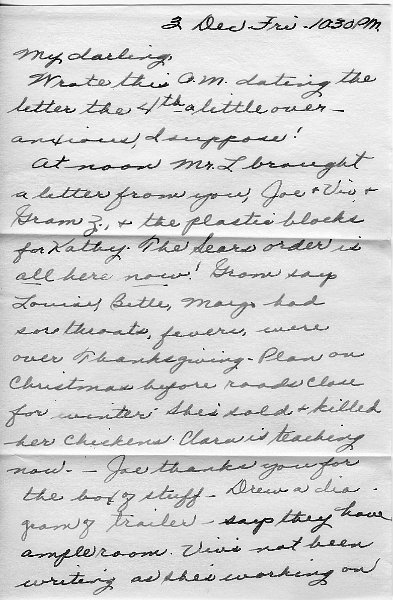 3 Dec Fri - 10:30 P.M.
My darling,
Wrote this A.M. dating the
letter the 4th a little over-
anxious, I suppose!
At noon Mr. L brought
a letter from you, Joe & Viv &
Gram Z., & the plastic blocks
for Kathy. The Sears order is
all here now! Gram says
Louise, Bette, Marge had
sore throats, fevers, were
over Thanksgiving - Plan on
Christmas before roads close
for winter. She's sold & killed
her chickens. Clara is teaching
now. - Joe thanks you for
the box of stuff - Drew a dia-
gram of trailer - says they have
ample room. Viv's not been
writing as she's working on